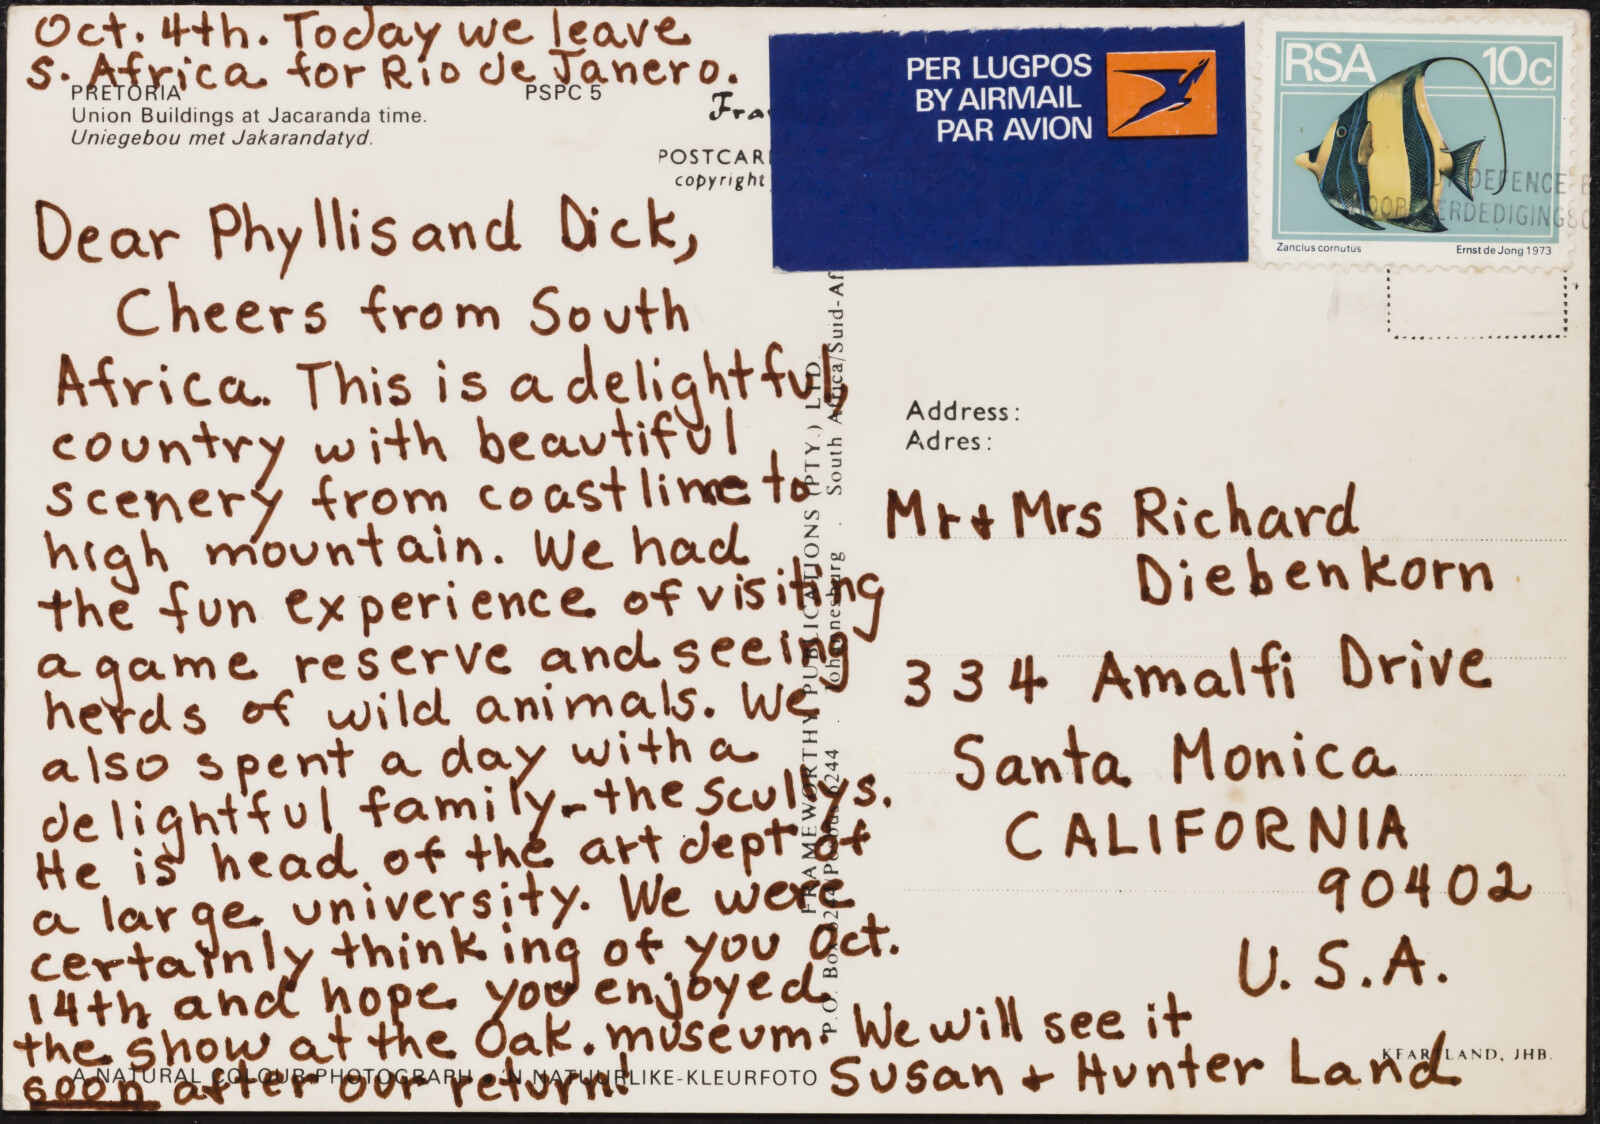 Oct. 4th. Today we leave
S. Africa for Rio de Janero.
PRETORIA PSPC 5
Union Buildings at Jacaranda time.
Uniegebou met Jakarandatyd.
POSTCAR
copyright
Dear Phyllis and Dick,
Cheers from South
Africa. This is a delightful,
country with beautiful
scenery from coastline to
high mountain. We had
the fun experience of visiting
a game reserve and seeing
herds of wild animals. We
also spent a day with a
delightful family - the Scullys.
He is head of the art dept of
a large university. We were
certainly thinking of you Oct.
14th and hope you enjoyed
the show at the Oak. museum. We will see it
soon after our return!
Susan + Hunter Land
A NATURAL COLOUR PHOTOGRAPH . 'N NATUURLIKE-KLEURFOTO
FRAMEWORTHY PUBLICATIONS (PTY.) LTD.
P.O. Box 6244 Posbus 6244 . Johannesburg . South Africa/Suid-Af
PER LUGPOS
BY AIRMAIL
PAR AVION
RSA 10c
DEFENCE
VERDEDIGING
Zanclus cornutus Ernst de Jong 1973
Address:
Adres:
Mr + Mrs Richard
Diebenkorn
334 Amalfi Drive
Santa Monica
CALIFORNIA
90402
U.S.A.
KEARTLAND, JHB.